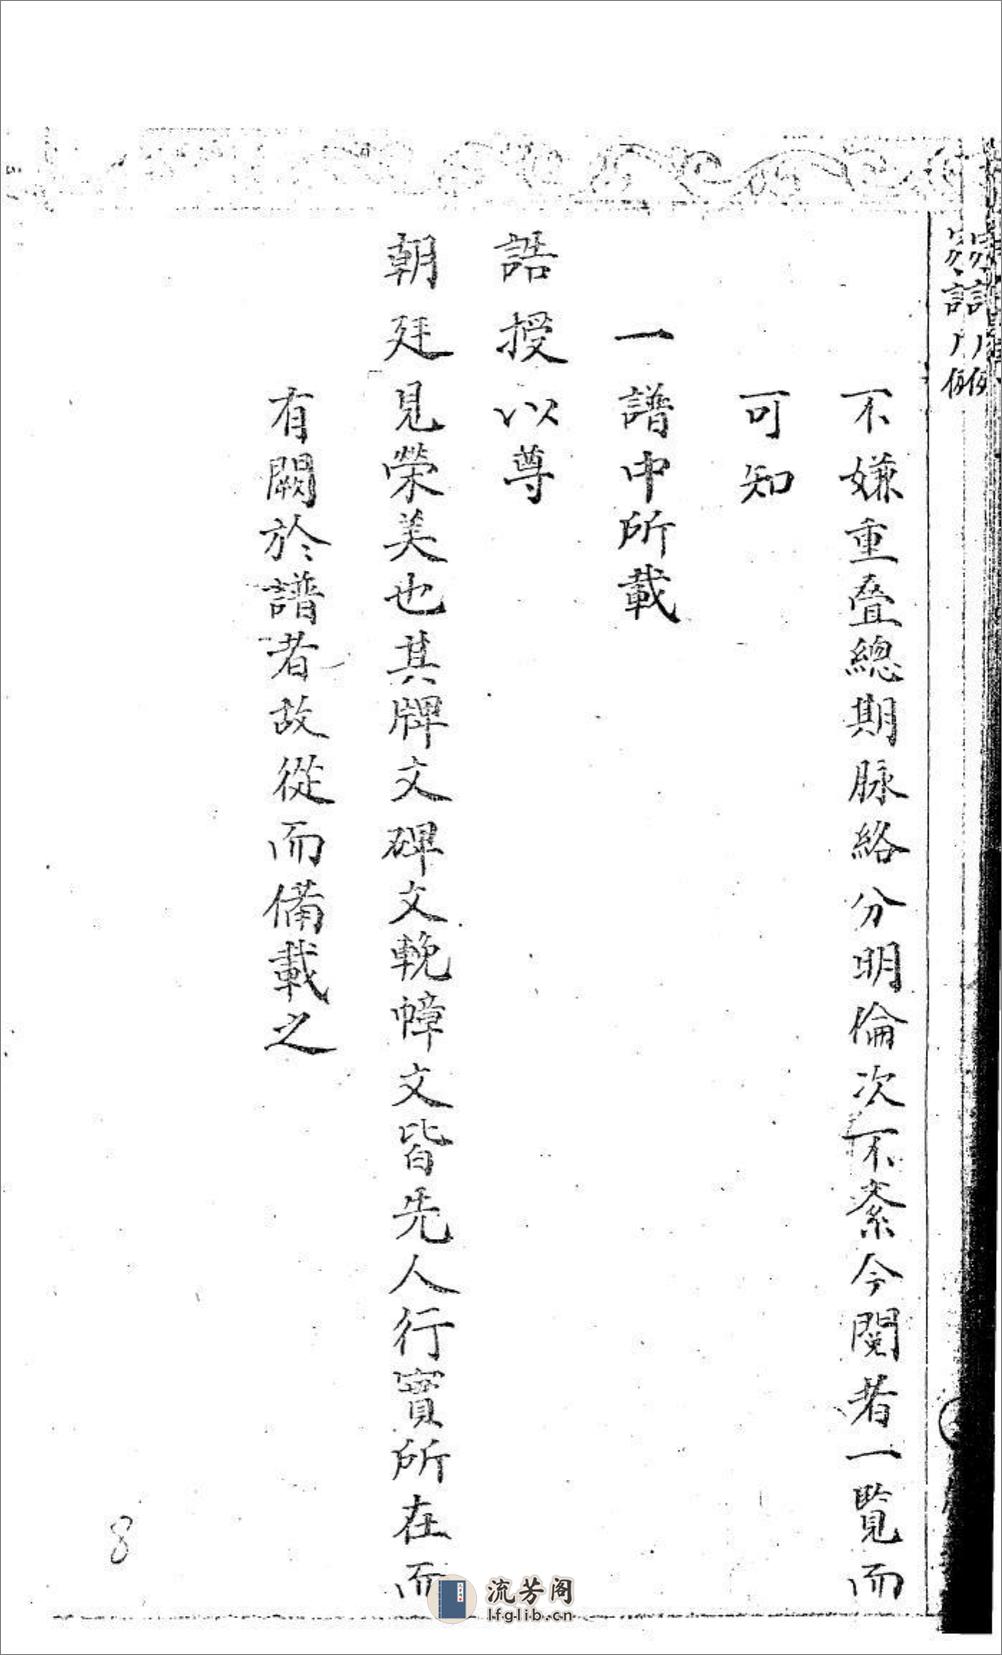 不嫌重叠總期脉絡分明倫次不紊今閱者一覧而
可知
一譜中所載
誥授以尊
朝廷見榮美也其牌文碑文輓幛文皆先人行實所在而
有闕於譜者故從而備載之
8
流芳阁
lfglib.cn